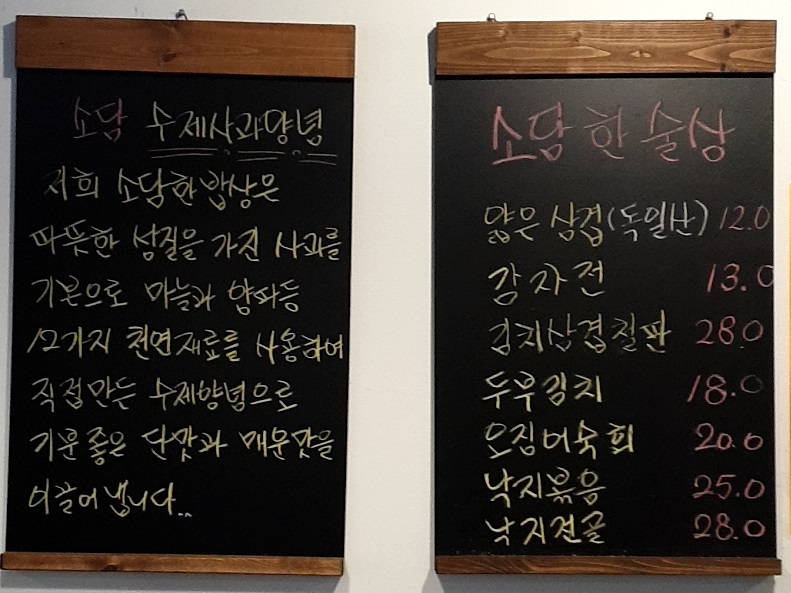 소담 수제사과양념
저희 소담한밥상은
따뜻한 성질을 가진 사과를
기본으로 마늘과 양파등
12가지 천연재료를 사용하여
직접만든 수제양념으로
기분좋은 단맛과 매운맛을
이끌어냅니다..
소담한 술상
얇은 삼겹(독일산) 12.0
감자전 13.0
김치삼겹철판 28.0
두부김치 18.0
오징어숙회 20.0
낙지볶음 25.0
낙지전골 28.0